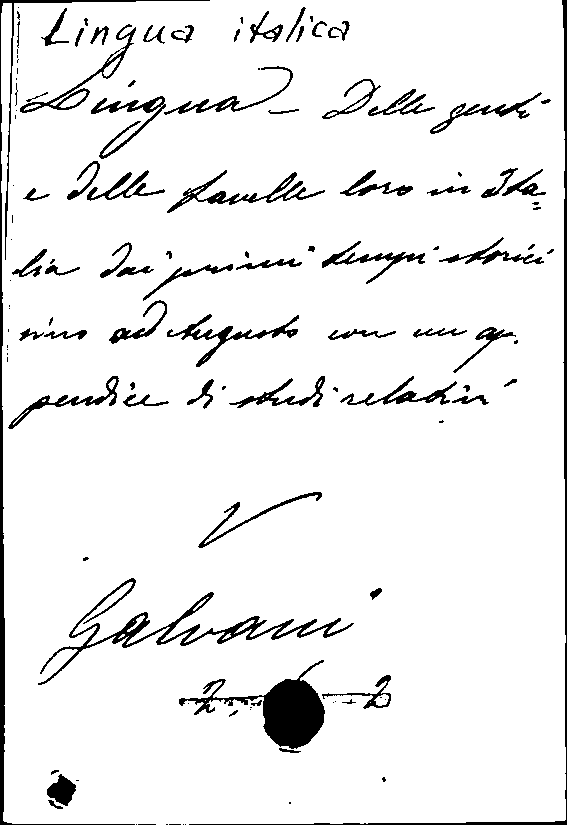 Lingua italica
Lingua - Delle genti
e delle favelle loro in Ita=
lia dai primi tempi storici
sino ad Augusto con un ap.
pendice di studi relativi
V
Galvani
2 2